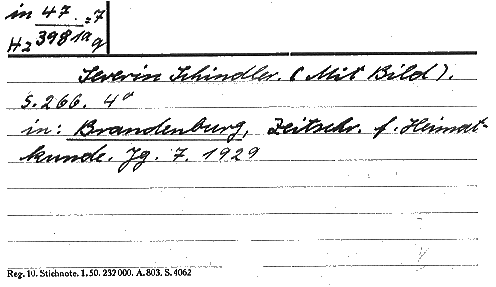 in 47. =7
Hz 3981a 9
Severin Schindler. (Mit Bild).
S. 266. 4°
in: Brandenburg, Zeitschr. f. Heimat-
kunde. Jg. 7. 1929
Reg. 10. Stichnote. 1. 50. 232 000. A. 803. S. 4062